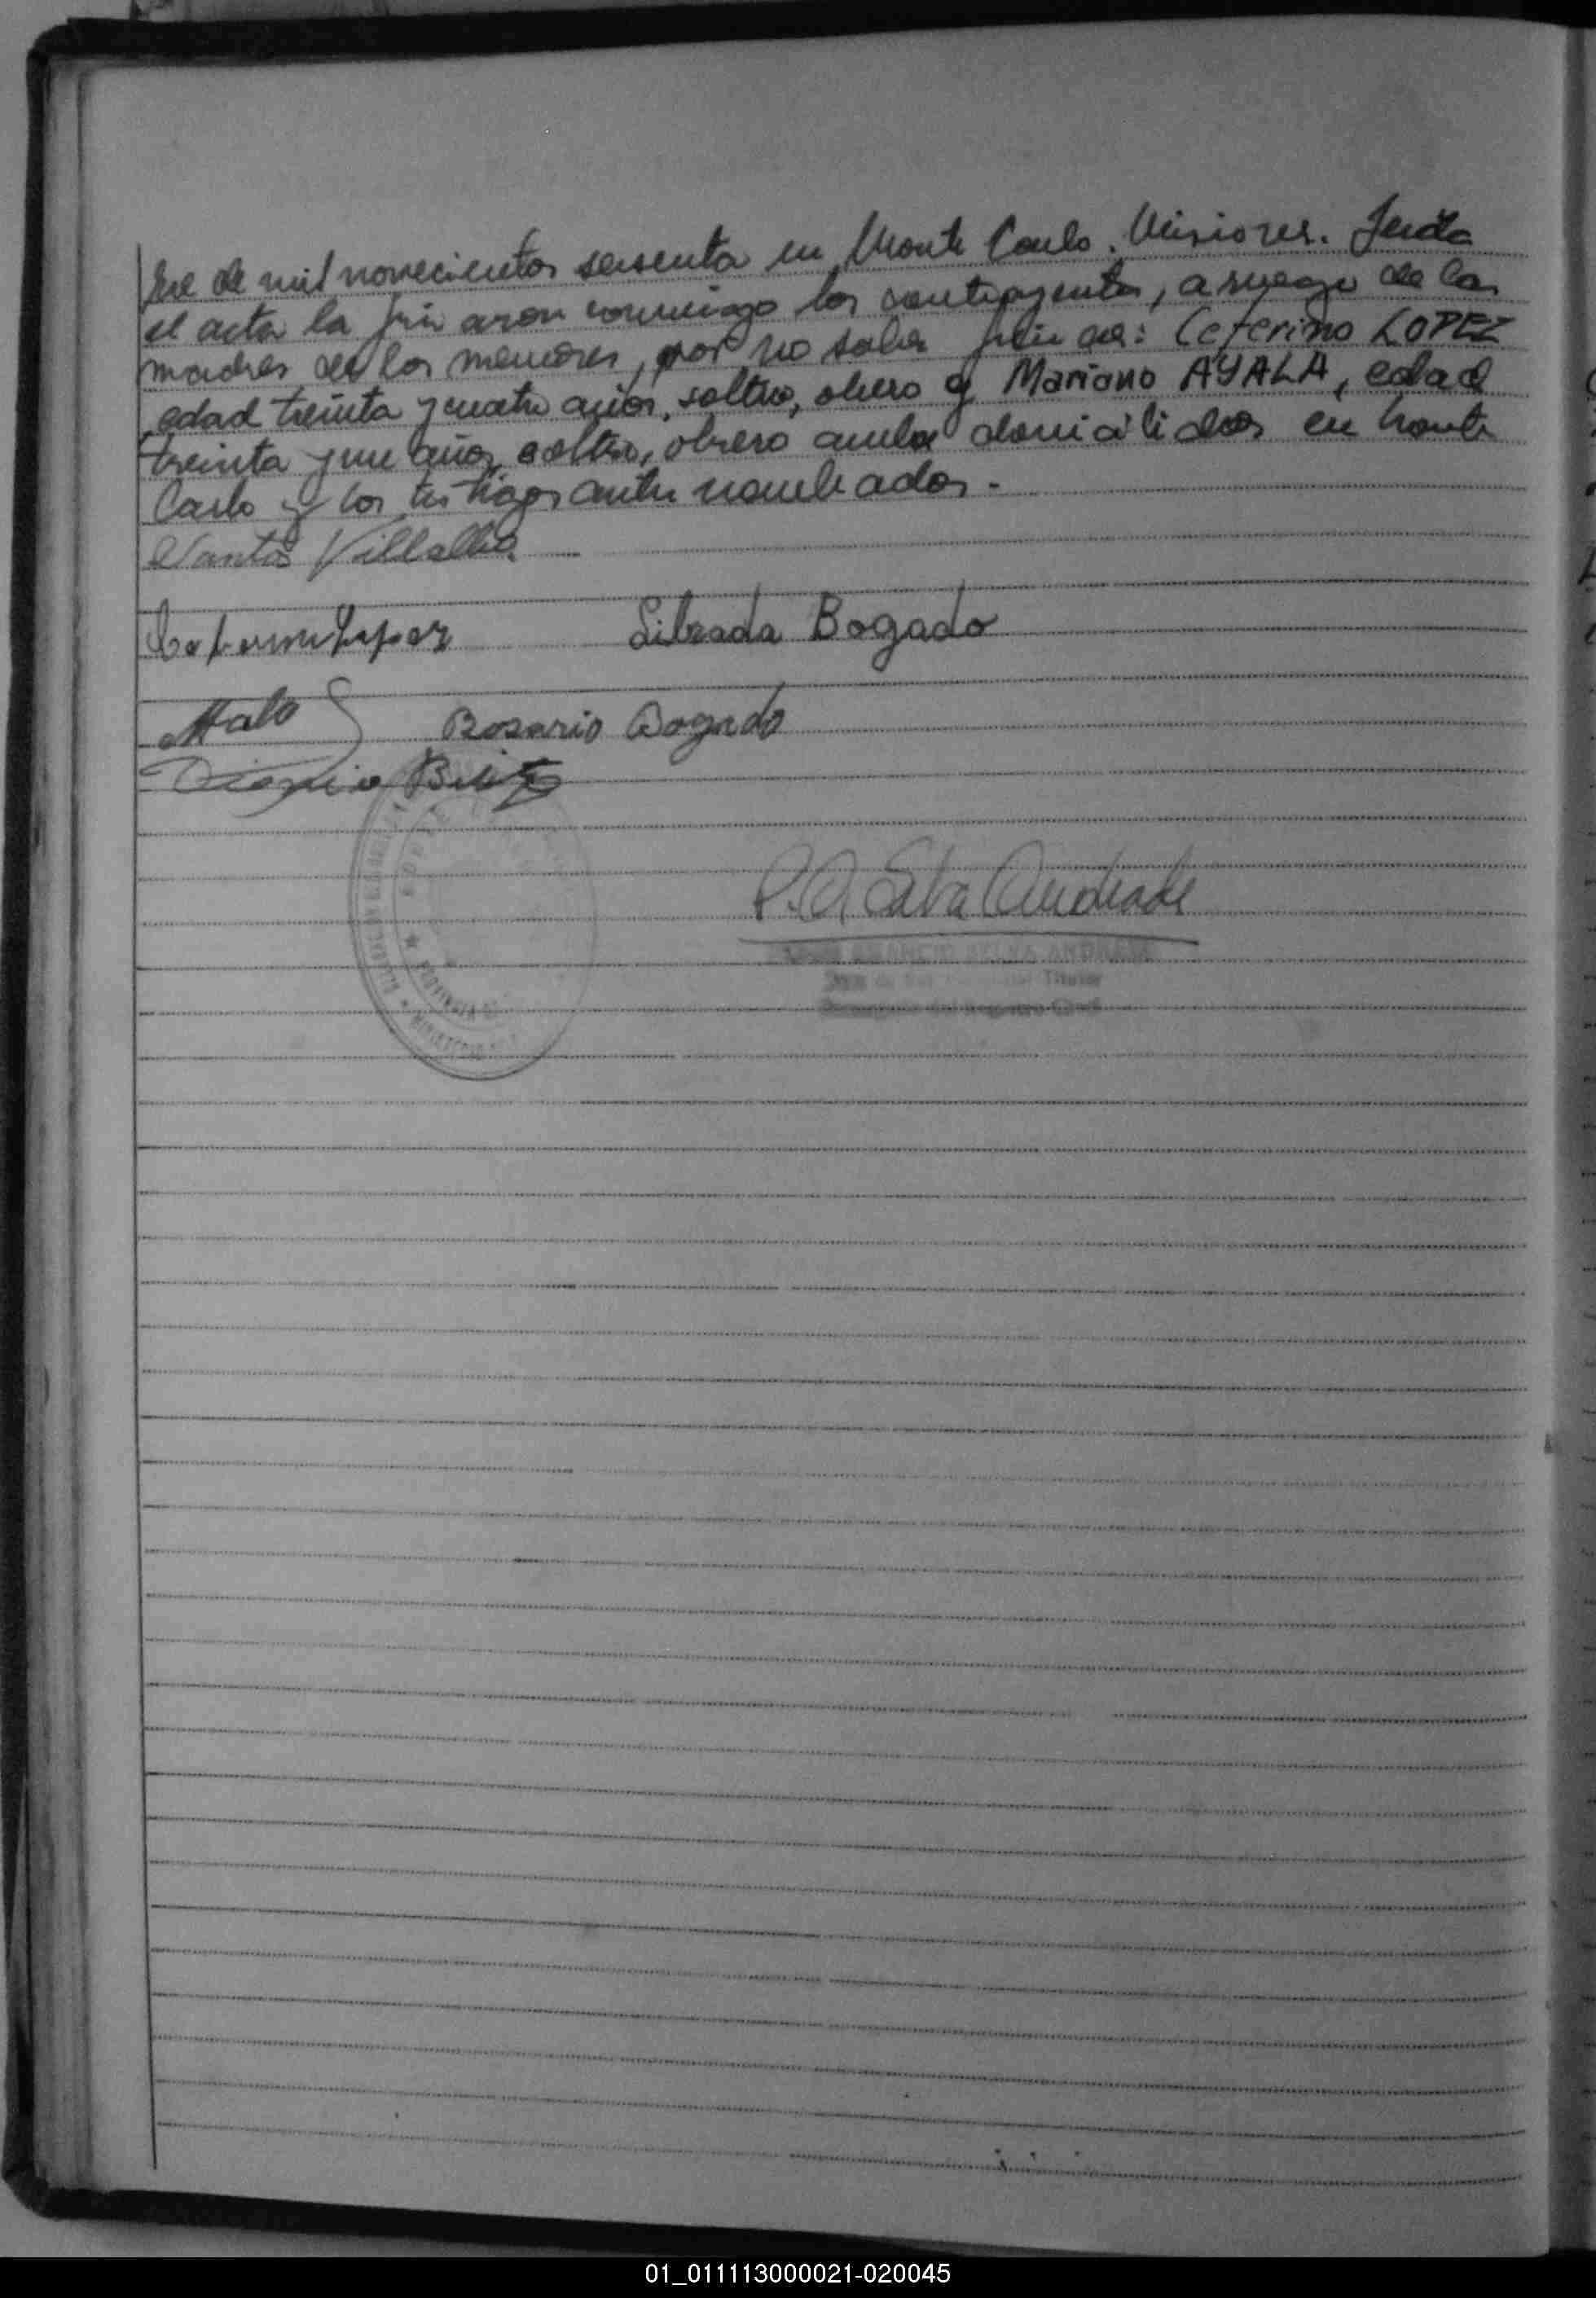 bre de mil novecientos sesenta en Monte Carlo. Misiones. Leida
el acta la firmaron conmigo los contrayentes, a ruego de las
madres de los menores, por no saber firmar: Ceferino LOPEZ
edad treinta y cuatro años, soltero, obrero y Mariano AYALA, edad
treinta y un años, soltero, obrero ambos domiciliados en Monte
Carlo y los testigos antes nombrados.-
Santos Villalba
Ceferino Lopez Librada Bogado
Rosario Bogado
Dionicio Benitez
P. A. Silva Andrade
AMANCIO SILVA ANDRADE
Juez de Titular
Encargado del Registro Civil
PROVINCIA
MINISTERIO
01_011113000021-020045